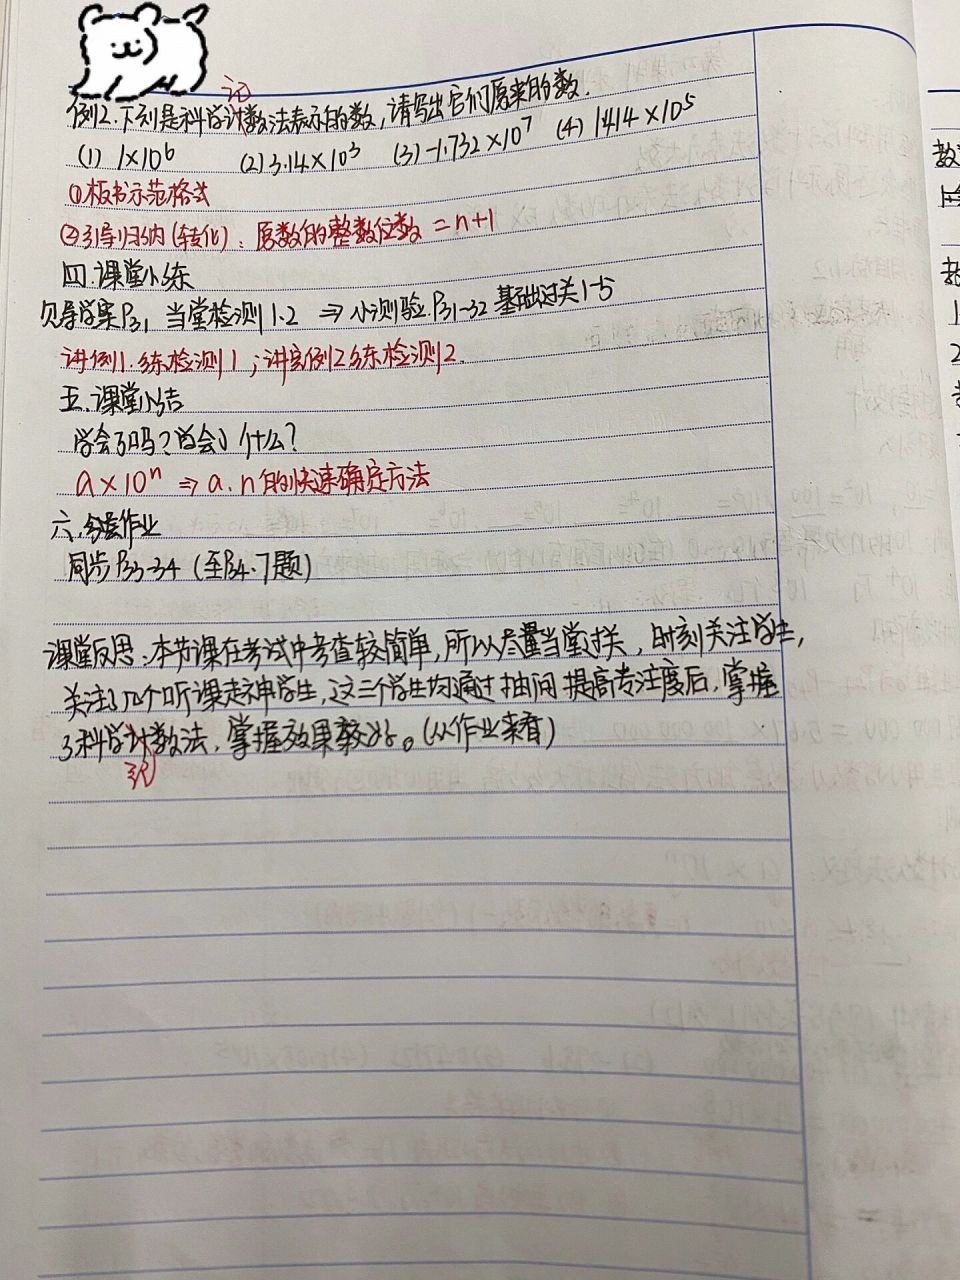 记
例2.下列是科学计数法表示的数,请写出它们原来的数.
(1) 1×10⁶ (2) 3.14×10³ (3) -1.732×10⁷ (4) 1.414×10⁵
①板书示范格式
②引导归纳(转化):原数的整数位数=n+1
四.课堂小练
见导学案P31 当堂检测1.2 ⇒小测验.P31-32 基础过关1-5
讲例1.练检测1;讲完例2练检测2.
五.课堂小结
学会了吗?学会了什么?
a×10ⁿ ⇒ a.n的快速确定方法
六.分层作业
同步P33-34 (至P34.7题)
课堂反思:本节课在考试中考查较简单,所以尽量当堂过关,时刻关注学生,
关注了几个听课走神学生,这三个学生均通过抽问提高专注度后,掌握
了科学计数法,掌握效果较好。(从作业来看)
记